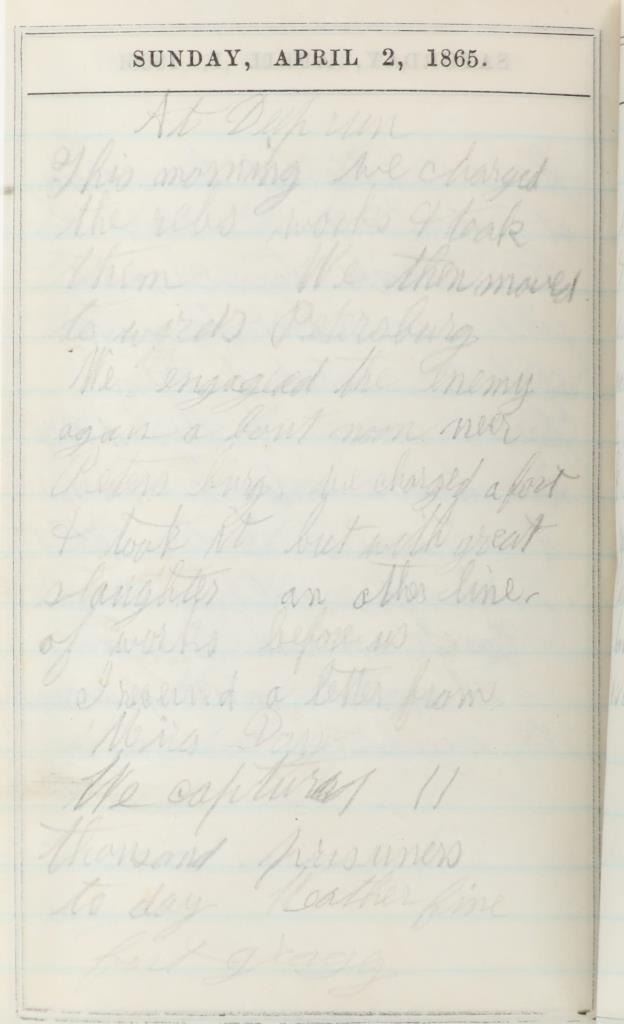 SUNDAY, APRIL 2, 1865.
At Deep run
This morning we charged
the rebs works & took
them We then moved
to wirds Petersburg
We engaged the enemy
again a bout noon neer
Peters burg, we charged a fort
& took it but with great
slaughter an other line
of works before us
I receivd a letter from
We captured 11
thousand prisuners
to day Weather fine
fort gragg